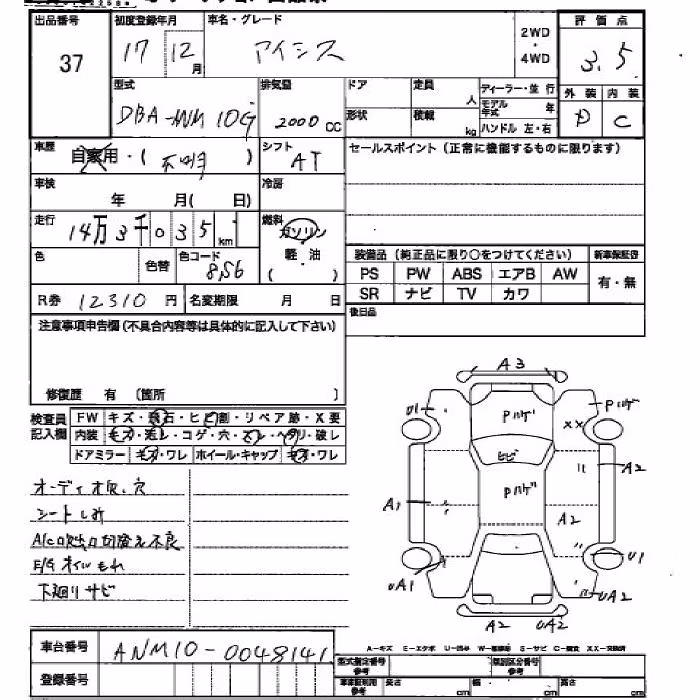 出品番号 初度登録年月 車名・グレード 評価点
37 17 12月 アイシス 2WD ・ 4WD 3.5
型式 排気量 ドア 定員 人 ディーラー・並行 外装 内装
DBA-ANM10G 2000cc 形状 積載 kg モデル年式 年 D C
ハンドル 左・右
車歴 自家用・( 不明 ) シフト AT セールスポイント(正常に機能するものに限ります)
車検 年 月( 日) 冷房
走行 14万3千035km 燃料 ガソリン
軽・油
( )
色 色替 色コード 8S6
装備品(純正品に限り○をつけてください) 新車保証書
PS PW ABS エアB AW 有・無
SR ナビ TV カワ
R券 12310円 名変期限 月 日 後日品
注意事項申告欄(不具合内容等は具体的に記入して下さい)
修復歴 有 〔箇所 〕
検査員記入欄
FW キズ・飛石・ヒビ割・リペア跡・X要
内装 キズ・汚レ・コゲ・穴・スレ・ヘタリ・破レ
ドアミラー キズ・ワレ ホイール・キャップ キズ・ワレ
オーディオ欠.穴
シートしみ
A/C吹出口切替え不良
E/Gオイルもれ
下廻りサビ
A3
U1 Pハゲ Pハゲ
XX
ヒビ
A2
Pハゲ
A1 A2
UA1 U1
UA2
A2 UA2
車台番号 ANM10-0048141
A-キズ E-エクボ U-凹み W-補修跡 S-サビ C-腐食 XX-交換済
登録番号
型式指定番号 参考 類別区分番号 参考
車庫証明用 参考 長さ cm 幅 cm 高さ cm